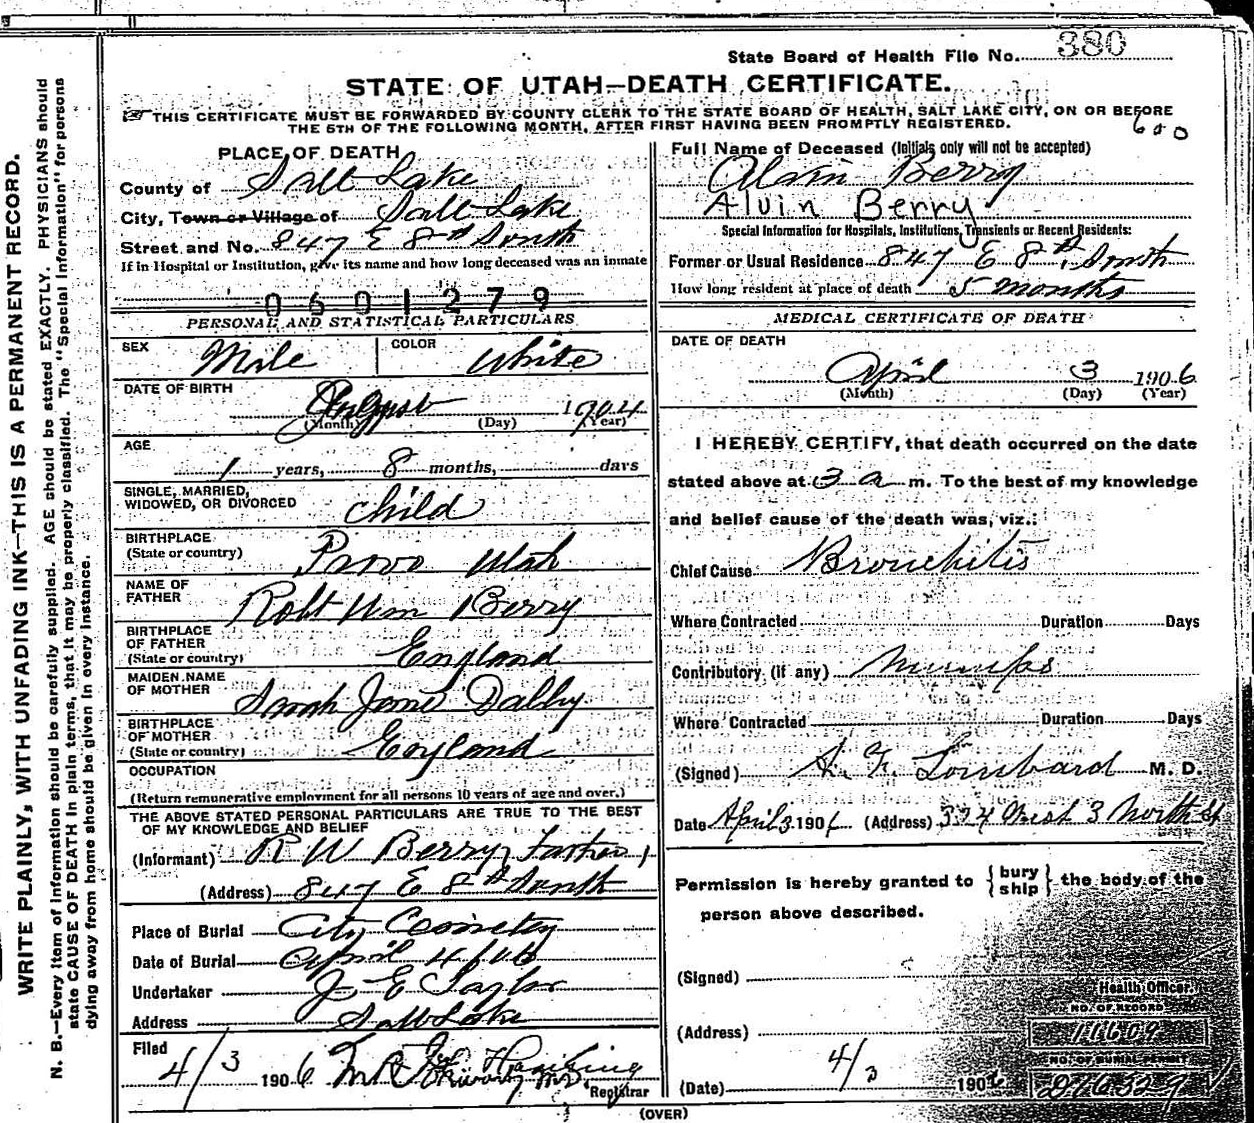 State Board of Health File No. 380
STATE OF UTAH—DEATH CERTIFICATE.
THIS CERTIFICATE MUST BE FORWARDED BY COUNTY CLERK TO THE STATE BOARD OF HEALTH, SALT LAKE CITY, ON OR BEFORE
THE 5TH OF THE FOLLOWING MONTH, AFTER FIRST HAVING BEEN PROMPTLY REGISTERED.
600
WRITE PLAINLY, WITH UNFADING INK—THIS IS A PERMANENT RECORD.
N. B.—Every item of information should be carefully supplied. AGE should be stated EXACTLY. PHYSICIANS should
state CAUSE OF DEATH in plain terms, that it may be properly classified. The "Special Information" for persons
dying away from home should be given in every instance.
PLACE OF DEATH
County of Salt Lake
City, Town or Village of Salt Lake
Street and No. 847 E 8th South
If in Hospital or Institution, give its name and how long deceased was an inmate
0601279
PERSONAL AND STATISTICAL PARTICULARS
SEX Male COLOR White
DATE OF BIRTH August 1904
(Month) (Day) (Year)
AGE
1 years, 8 months, days
SINGLE, MARRIED,
WIDOWED, OR DIVORCED child
BIRTHPLACE
(State or country) Provo Utah
NAME OF
FATHER Robt Wm Berry
BIRTHPLACE
OF FATHER
(State or country) England
MAIDEN NAME
OF MOTHER Sarah Jane Dalby
BIRTHPLACE
OF MOTHER
(State or country) England
OCCUPATION
(Return remunerative employment for all persons 10 years of age and over.)
THE ABOVE STATED PERSONAL PARTICULARS ARE TRUE TO THE BEST
OF MY KNOWLEDGE AND BELIEF
(Informant) R W Berry, Father
(Address) 847 E 8th South
Place of Burial City Cemetery
Date of Burial April 4/06
Undertaker J E Taylor
Address Salt Lake
Filed
4/3 1906
Registrar
Full Name of Deceased (Initials only will not be accepted)
Alvin Berry
Alvin Berry
Special Information for Hospitals, Institutions, Transients or Recent Residents:
Former or Usual Residence 847 E 8th South
How long resident at place of death 5 months
MEDICAL CERTIFICATE OF DEATH
DATE OF DEATH
April 3 1906
(Month) (Day) (Year)
I HEREBY CERTIFY, that death occurred on the date
stated above at 3 a m. To the best of my knowledge
and belief cause of the death was, viz.:
Chief Cause Bronchitis
Where Contracted Duration Days
Contributory (if any) Mumps
Where Contracted Duration Days
(Signed) Lombard M. D.
Date April 3 1906 (Address) 334 West 3 North St
Permission is hereby granted to {bury
ship} the body of the
person above described.
(Signed)
Health Officer.
NO. OF RECORD
11609
(Address)
NO. OF BURIAL PERMIT
(Date) 4/3 1906 D26329
(OVER)